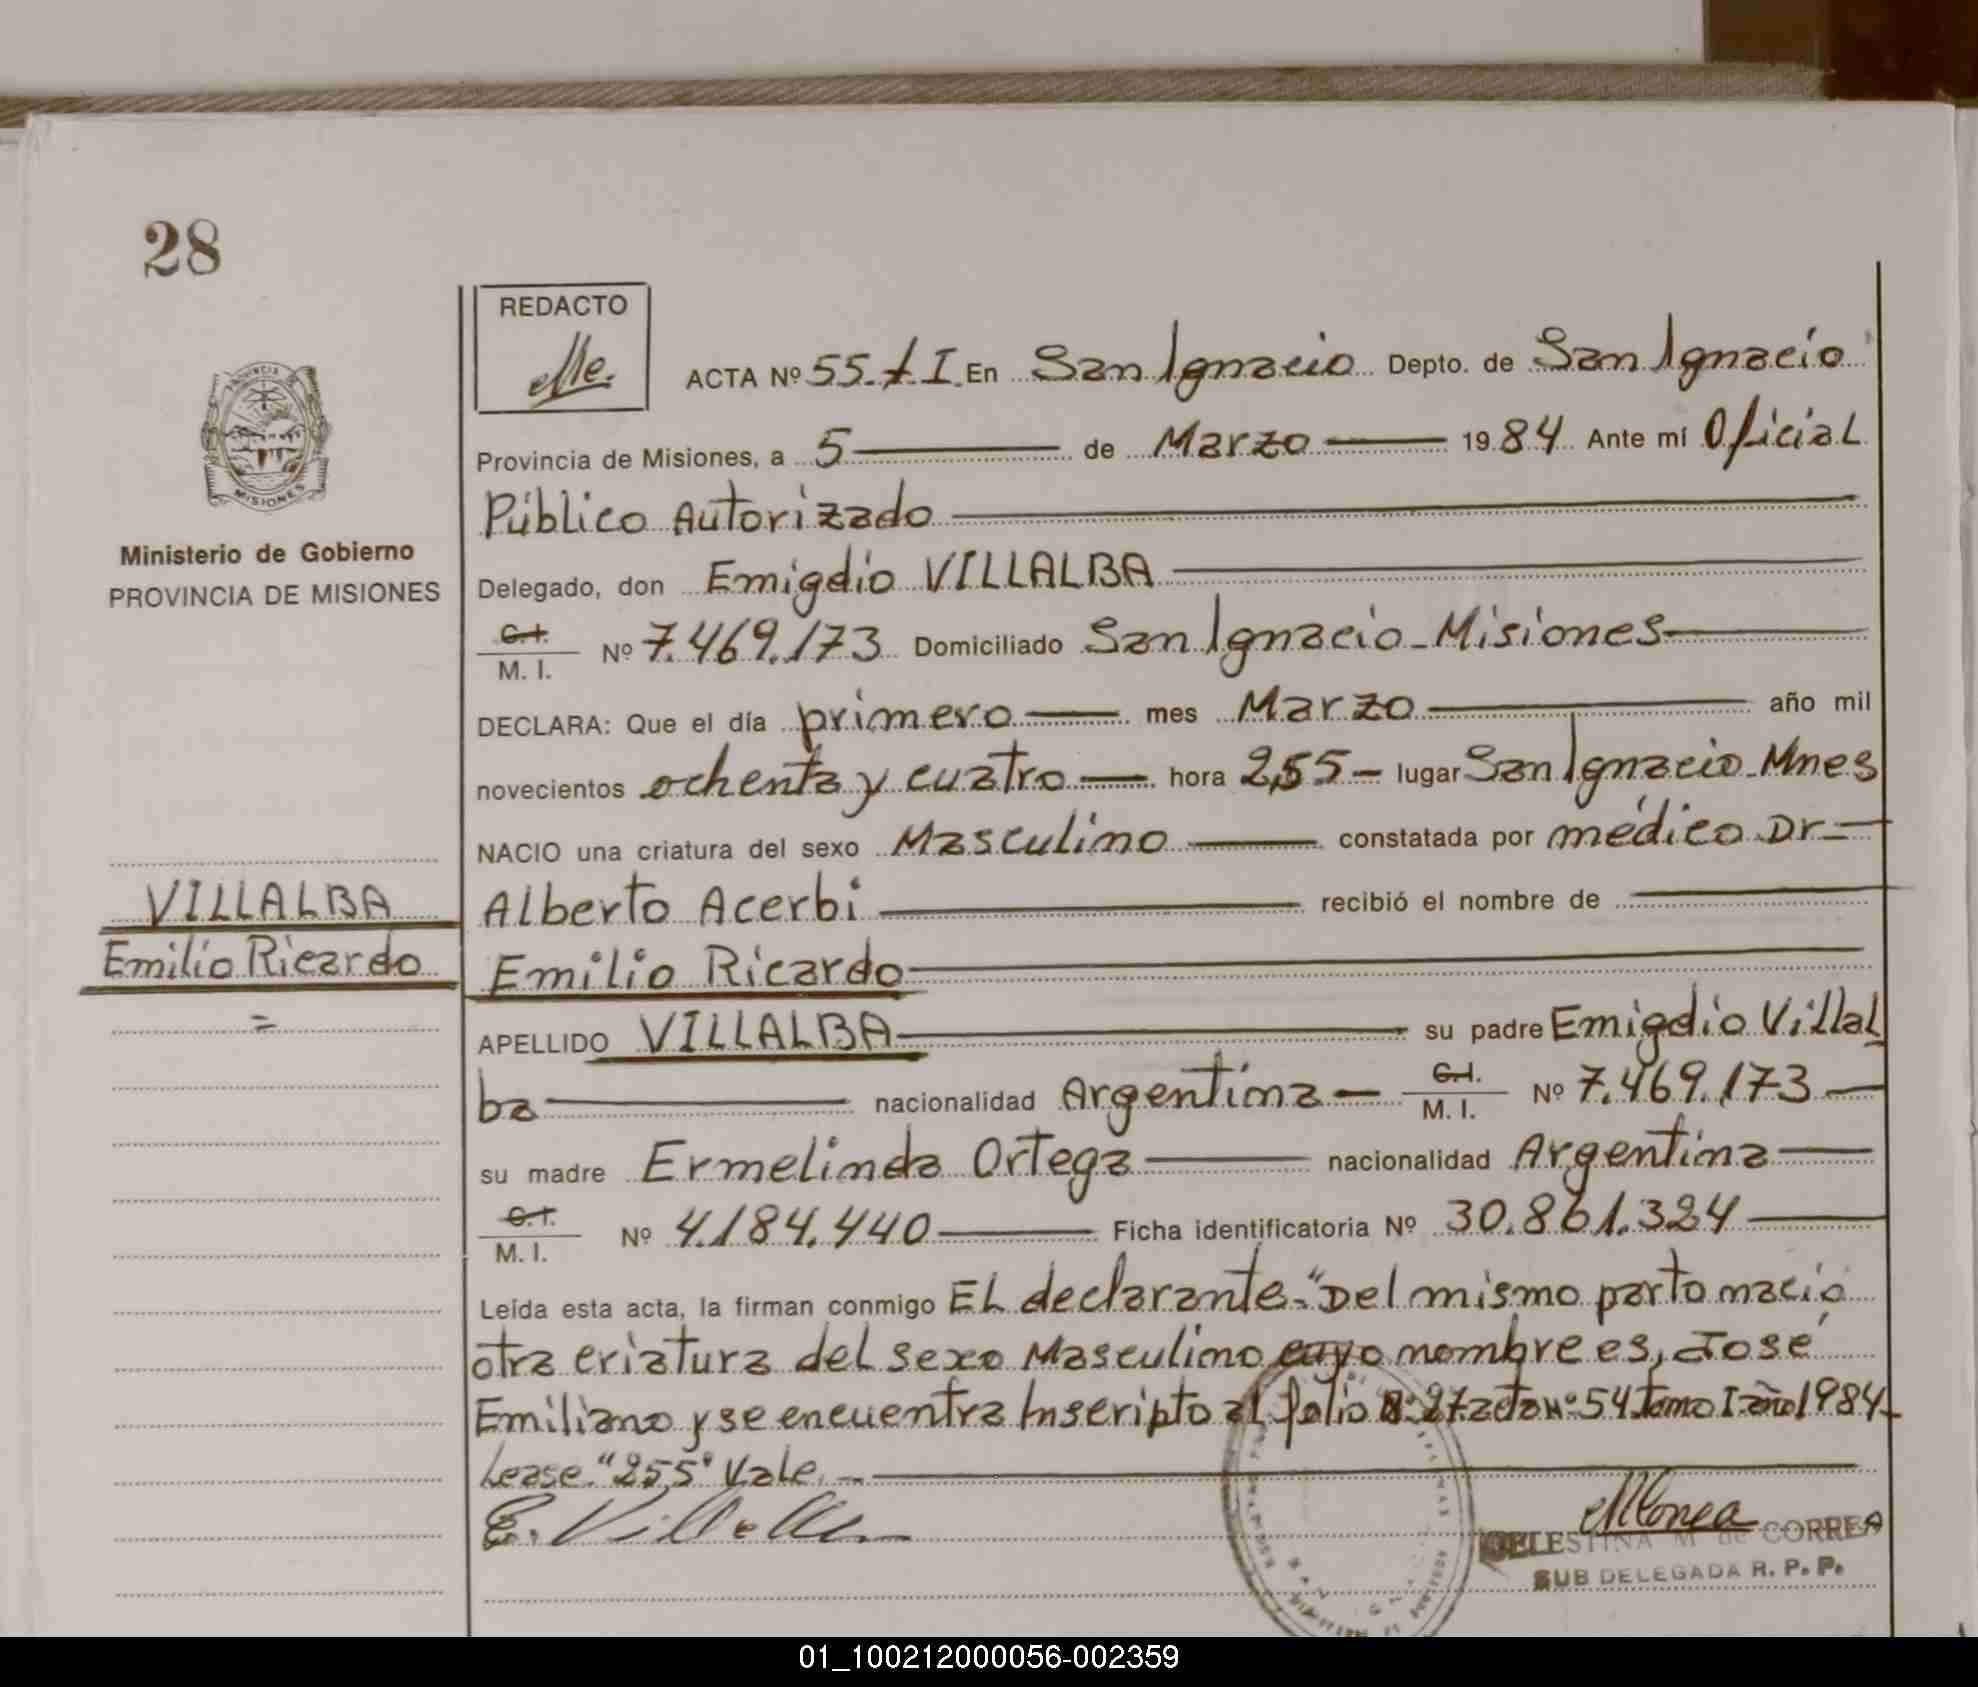 28
REDACTO
ACTA Nº 55. t I. En San Ignacio Depto. de San Ignacio
Provincia de Misiones, a 5 de Marzo 1984 Ante mí Oficial
Público Autorizado
Delegado, don Emigdio VILLALBA
C.I.
M. I. Nº 7.469.173 Domiciliado San Ignacio - Misiones
DECLARA: Que el día primero mes Marzo año mil
novecientos ochenta y cuatro hora 2,55 lugar San Ignacio - Mnes
NACIO una criatura del sexo Masculino constatada por médico Dr
Alberto Acerbi recibió el nombre de
Emilio Ricardo
APELLIDO VILLALBA su padre Emigdio Villal
ba nacionalidad Argentina C.I.
M. I. Nº 7.469.173
su madre Ermelinda Ortega nacionalidad Argentina
C.I.
M. I. Nº 4.184.440 Ficha identificatoria Nº 30.861.324
Leída esta acta, la firman conmigo El declarante.- "Del mismo parto nació
otra criatura del sexo Masculino cuyo nombre es, José
Emiliano y se encuentra Inscripto al folio Nº 27 acta Nº 54 tomo I año 1984-
Lease "2,55" Vale.-
E. Villalba
CELESTINA M de CORREA
SUB DELEGADA R. P. P.
PROVINCIA DE
MISIONES
Ministerio de Gobierno
PROVINCIA DE MISIONES
VILLALBA
Emilio Ricardo
=
01_100212000056-002359